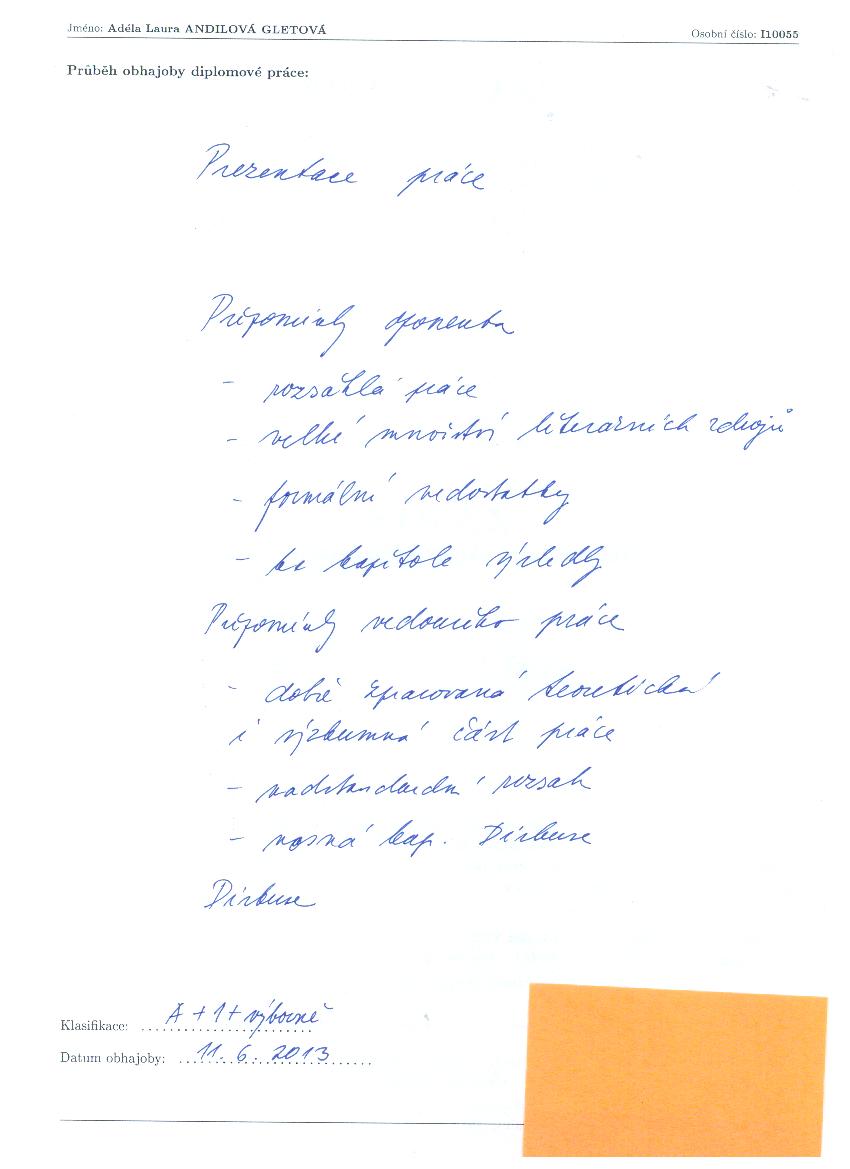 Jméno: Adéla Laura ANDILOVÁ GLETOVÁ Osobní číslo: I10055
Průběh obhajoby diplomové práce:
Prezentace práce
Připomínky oponenta
- rozsáhlá práce
- velké množství literárních zdrojů
- formální nedostatky
- ke kapitole výsledky
Připomínky vedoucího práce
- dobře zpracovaná teoretická
i výzkumná část práce
- nadstandardní rozsah
- nosná kap. Diskuse
Diskuse
Klasifikace: A + 1 + výborně
Datum obhajoby: 11. 6. 2013